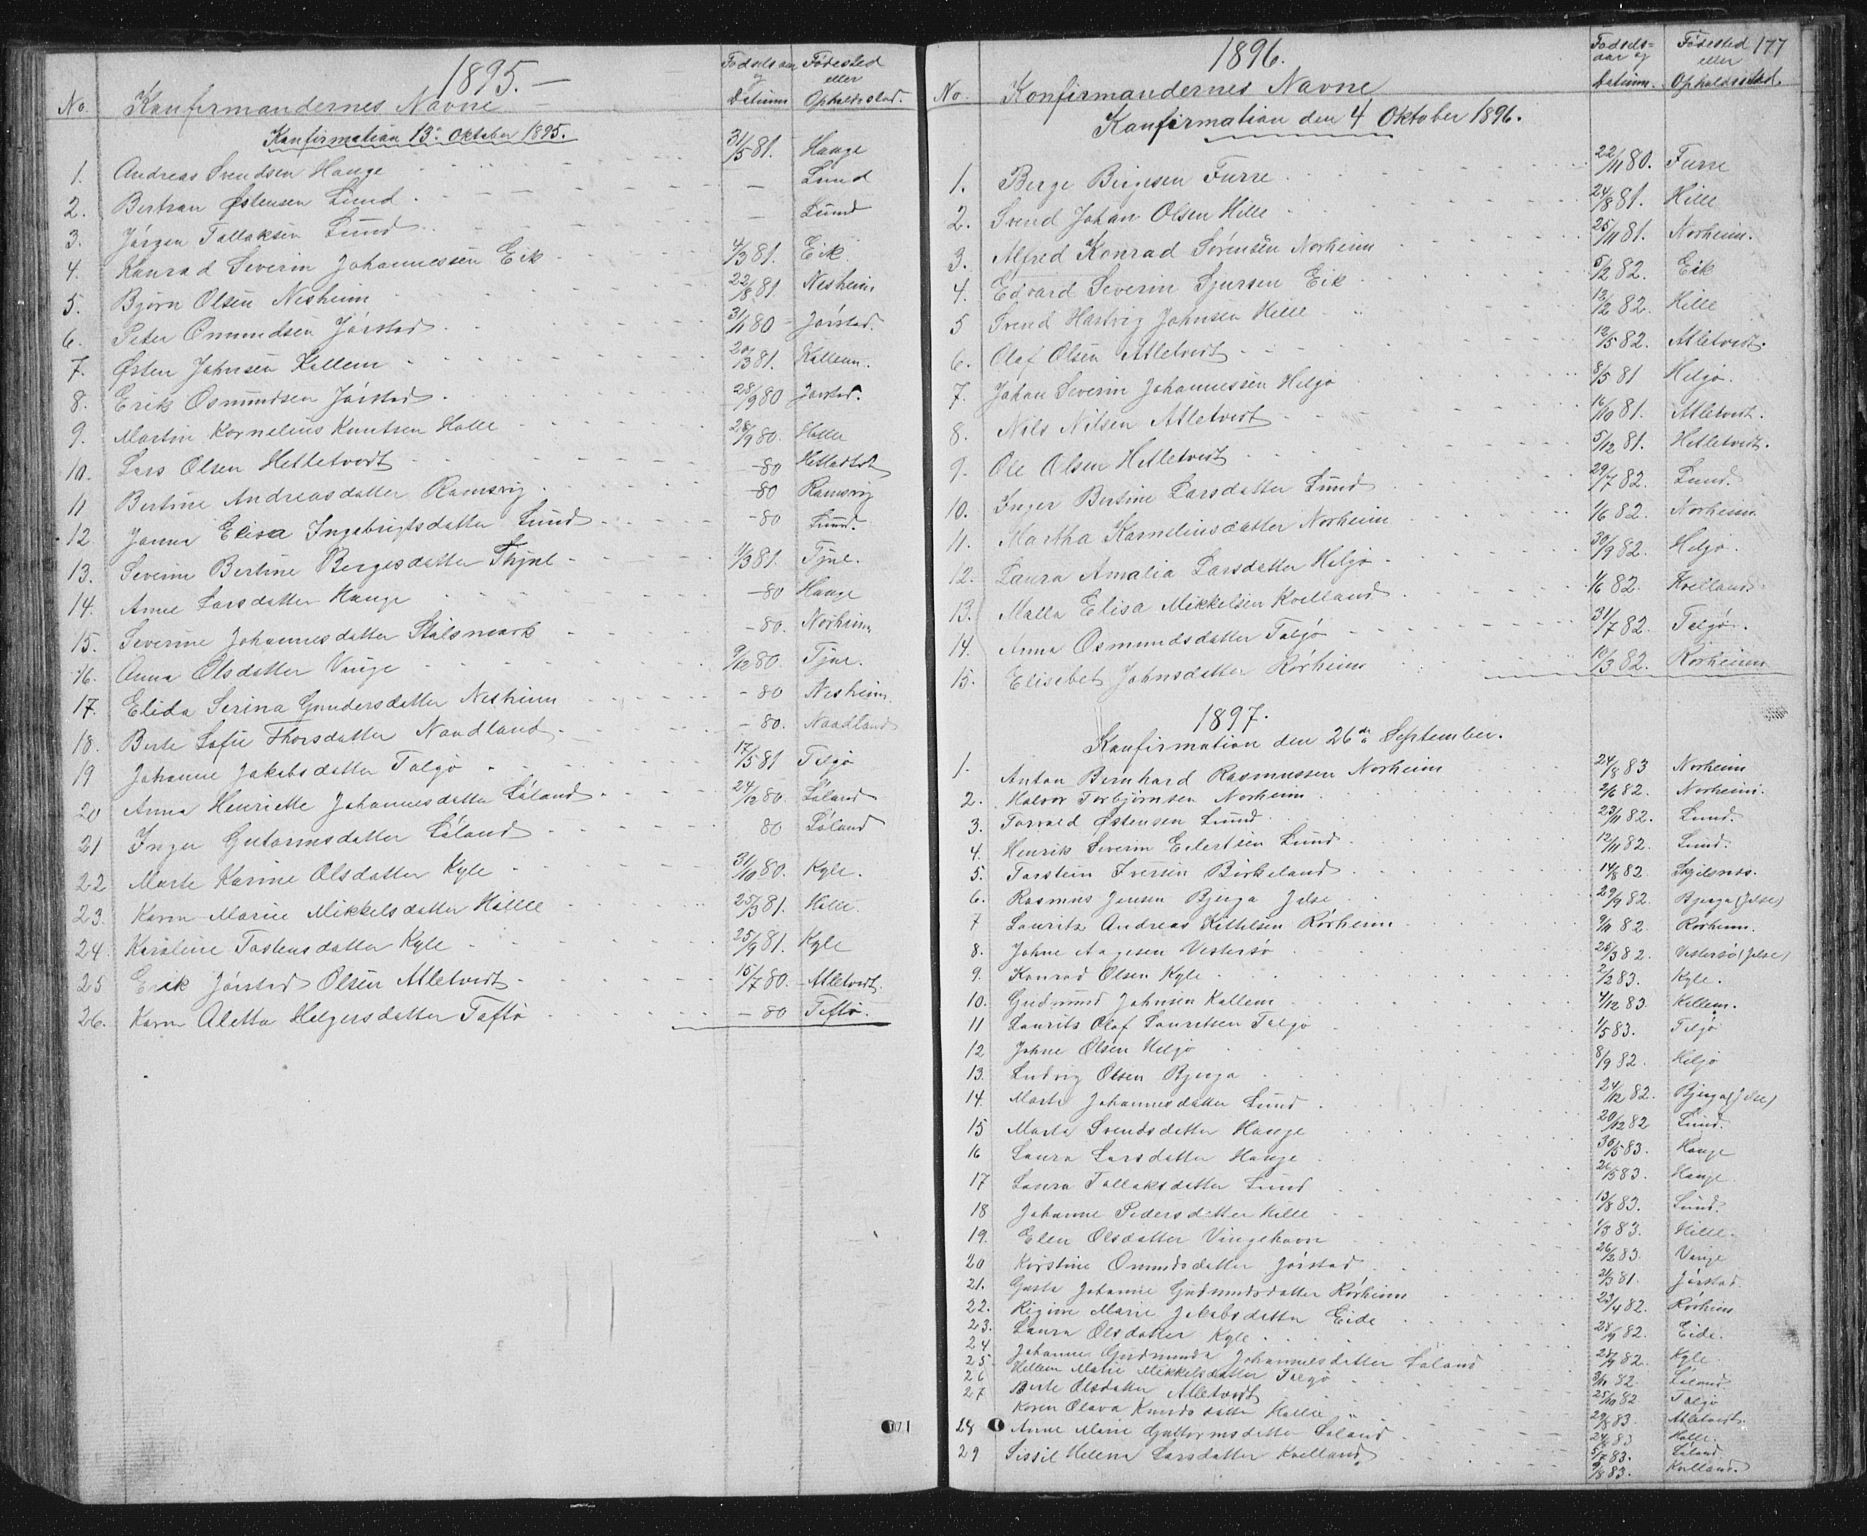 1895.
No.
Konfirmandernes Navne
Fødselsaar og Datum
Fødested eller Opholdssted.
Konfirmation 13de Oktober 1895.
1. Andreas Svendsen Hauge 31/5 81. Hauge
2. Bertran Østensen Lund — Lund
3. Jørgen Tollaksen Lund — Lund
4. Konrad Severin Johannessen Eik 4/3 81. Eik.
5. Bjørn Olsen Nesheim 22/8 81. Nesheim
6. Peter Omundsen Jørstad 3/11 80 - Jørstad.
7. Østen Johnsen Kallem 20/3 81. Kallem.
8. Erik Osmundsen Jørstad 28/9 80 Jørstad.
9. Martin Kornelius Knutsen Halle 28/9 80. Halle
10. Lars Olsen Hetletvedt -80
11 Bertine Andreasdatter Ramsvig -80 Ramsvig
12. Elisa Ingebrigtsdatter Lund -80 Lund.
13. Severine Bertine Bergesdatter 1/3 81. Tjul.
14. Anne Larsdatter Hauge -80 Hauge
15. Severine Johannesdatter - 80. Norheim
16. Anna Olsdatter Vinge 9/12 80.
17. Elida Serina Gundersdatter Nesheim - 80 Nesheim
18. Berte Sofie Thorsdatter Naadland - 80. Naadland
19 Johanne Jakobsdatter Talgø 17/5 81 Talgø
20 Anna Henriette Johannesdatter Løland 24/12 80. Løland
21 Inger Gutormsdatter Løland 80 Løland
22 Marte Karine Olsdatter Kyle 31/10 80. Kyle.
23. Karen Marie Mikkelsdatter Halle 25/3 81. Halle.
24. Karoline Tostensdatter Kyle 25/9 81. Kyle
25 Erik Jørstad Olsen Atletvedt 15/7 80. Atletvedt.
26. Karen Aletta Helgersdatter Toftø - 80 Toftø.
1896.
177
No.
Konfirmandernes Navne
Fødselsaar og Datum.
Fødested eller Opholdssted.
Konfirmation den 4 Oktober 1896.
1. Berge Birgesen Furre 22/11 80. Furre
2. Svend Johan Olsen Hille 24/8 81. Hille
3. Alfred Konrad Sørensen Norheim 25/11 81. Norheim.
4. Edvard Severin Sjursen Eik 5/12 82. Eik
5 Svend Hartvig Johnsen Hille 12/2 82. Hille
6. Olaf Olsen Atletvedt 12/5 82. Atletvedt.
7. Johan Severin Johannessen Helgø 8/5 81 Helgø.
8. Nils Nilsen Atletvedt 16/10 81. Atletvedt.
9. Ole Olsen Hetletvedt 5/12 81. Hetletvedt.
10. Inger Bertine Larsdatter Lund 29/7 82. Lund.
11. Martha Korneliusdatter Norheim 1/6 82. Norheim
12. Laura Amalia Larsdatter Helgø 30/9 82. Helgø.
13. Malla Elisa Mikkelsen Kvelland 1/6 82. Kvelland
14. Anna Osmundsdatter Talgø 31/7 82. Talgø.
15. Elisabet Johnsdatter Rørheim 10/3 82. Rørheim
1897.
Konfirmation den 26de September.
1. Anton Bernhard Rasmussen Norheim 24/8 83 Norheim
2. Halvor Torbjørnsen Norheim 2/6 82. Norheim.
3. Torvald Østensen Lund 23/11 82. Lund.
4. Henrik Severin Eilertsen Lund 12/11 82. Lund.
5. Torstein Iversen Birkeland 14/8 82.
6. Rasmus Jensen Bjerga Jelse 29/9 82. Bjerga (Jelse)
7 Laurits Andreas Kittelsen Rørheim 9/11 82. Rørheim.
8. Johne Aagesen Vestersø 26/3 82. Vestersø (Jelse)
9. Konrad Olsen Kyle 2/2 83. Kyle.
10. Gudmund Johnsen Kallem 4/12 83. Kallem.
11 Laurits Olaf Lauritsen Talgø 1/5 83. Talgø
12 Johne Olsen Helgø 8/9 82. Helgø
13. Ludvig Olsen Bjerga 24/12 82. Bjerga (Jelse)
14. Marta Johannesdatter Lund 20/12 82 Lund.
15 Marta Svendsdatter Hauge 30/5 83. Hauge
16 Laura Larsdatter Hauge Hauge
17 Laura Tollaksdatter Lund 13/8 83. Lund.
18 Johanne Pedersdatter Hille 1/3 83. Hille.
19. Elen Olsdatter Vingehavn 26/2 83. Vinge
20 Kirstine Omundsdatter Jørstad Jørstad
21. Gusta Johanne Gudmundsdatter Rørheim 23/4 82. Rørheim
22. Regine Marie Jakobsdatter Eide Eide.
23. Laura Olsdatter Kyle Kyle
24 Johanne Gudmunda Johannesdatter Løland Løland
25 Hellem Marie Mikkelsdatter Talgø 25/10 82 Talgø
26 Berte Olsdatter Atletvedt Atletvedt.
27 Karen Olava Knudsdatter Halle Halle.
28 Anne Marie Guttormsdatter Løland 5/7 83. Løland
29 Sissil Helena Larsdatter Kvelland 9/8 83. Kvelland.